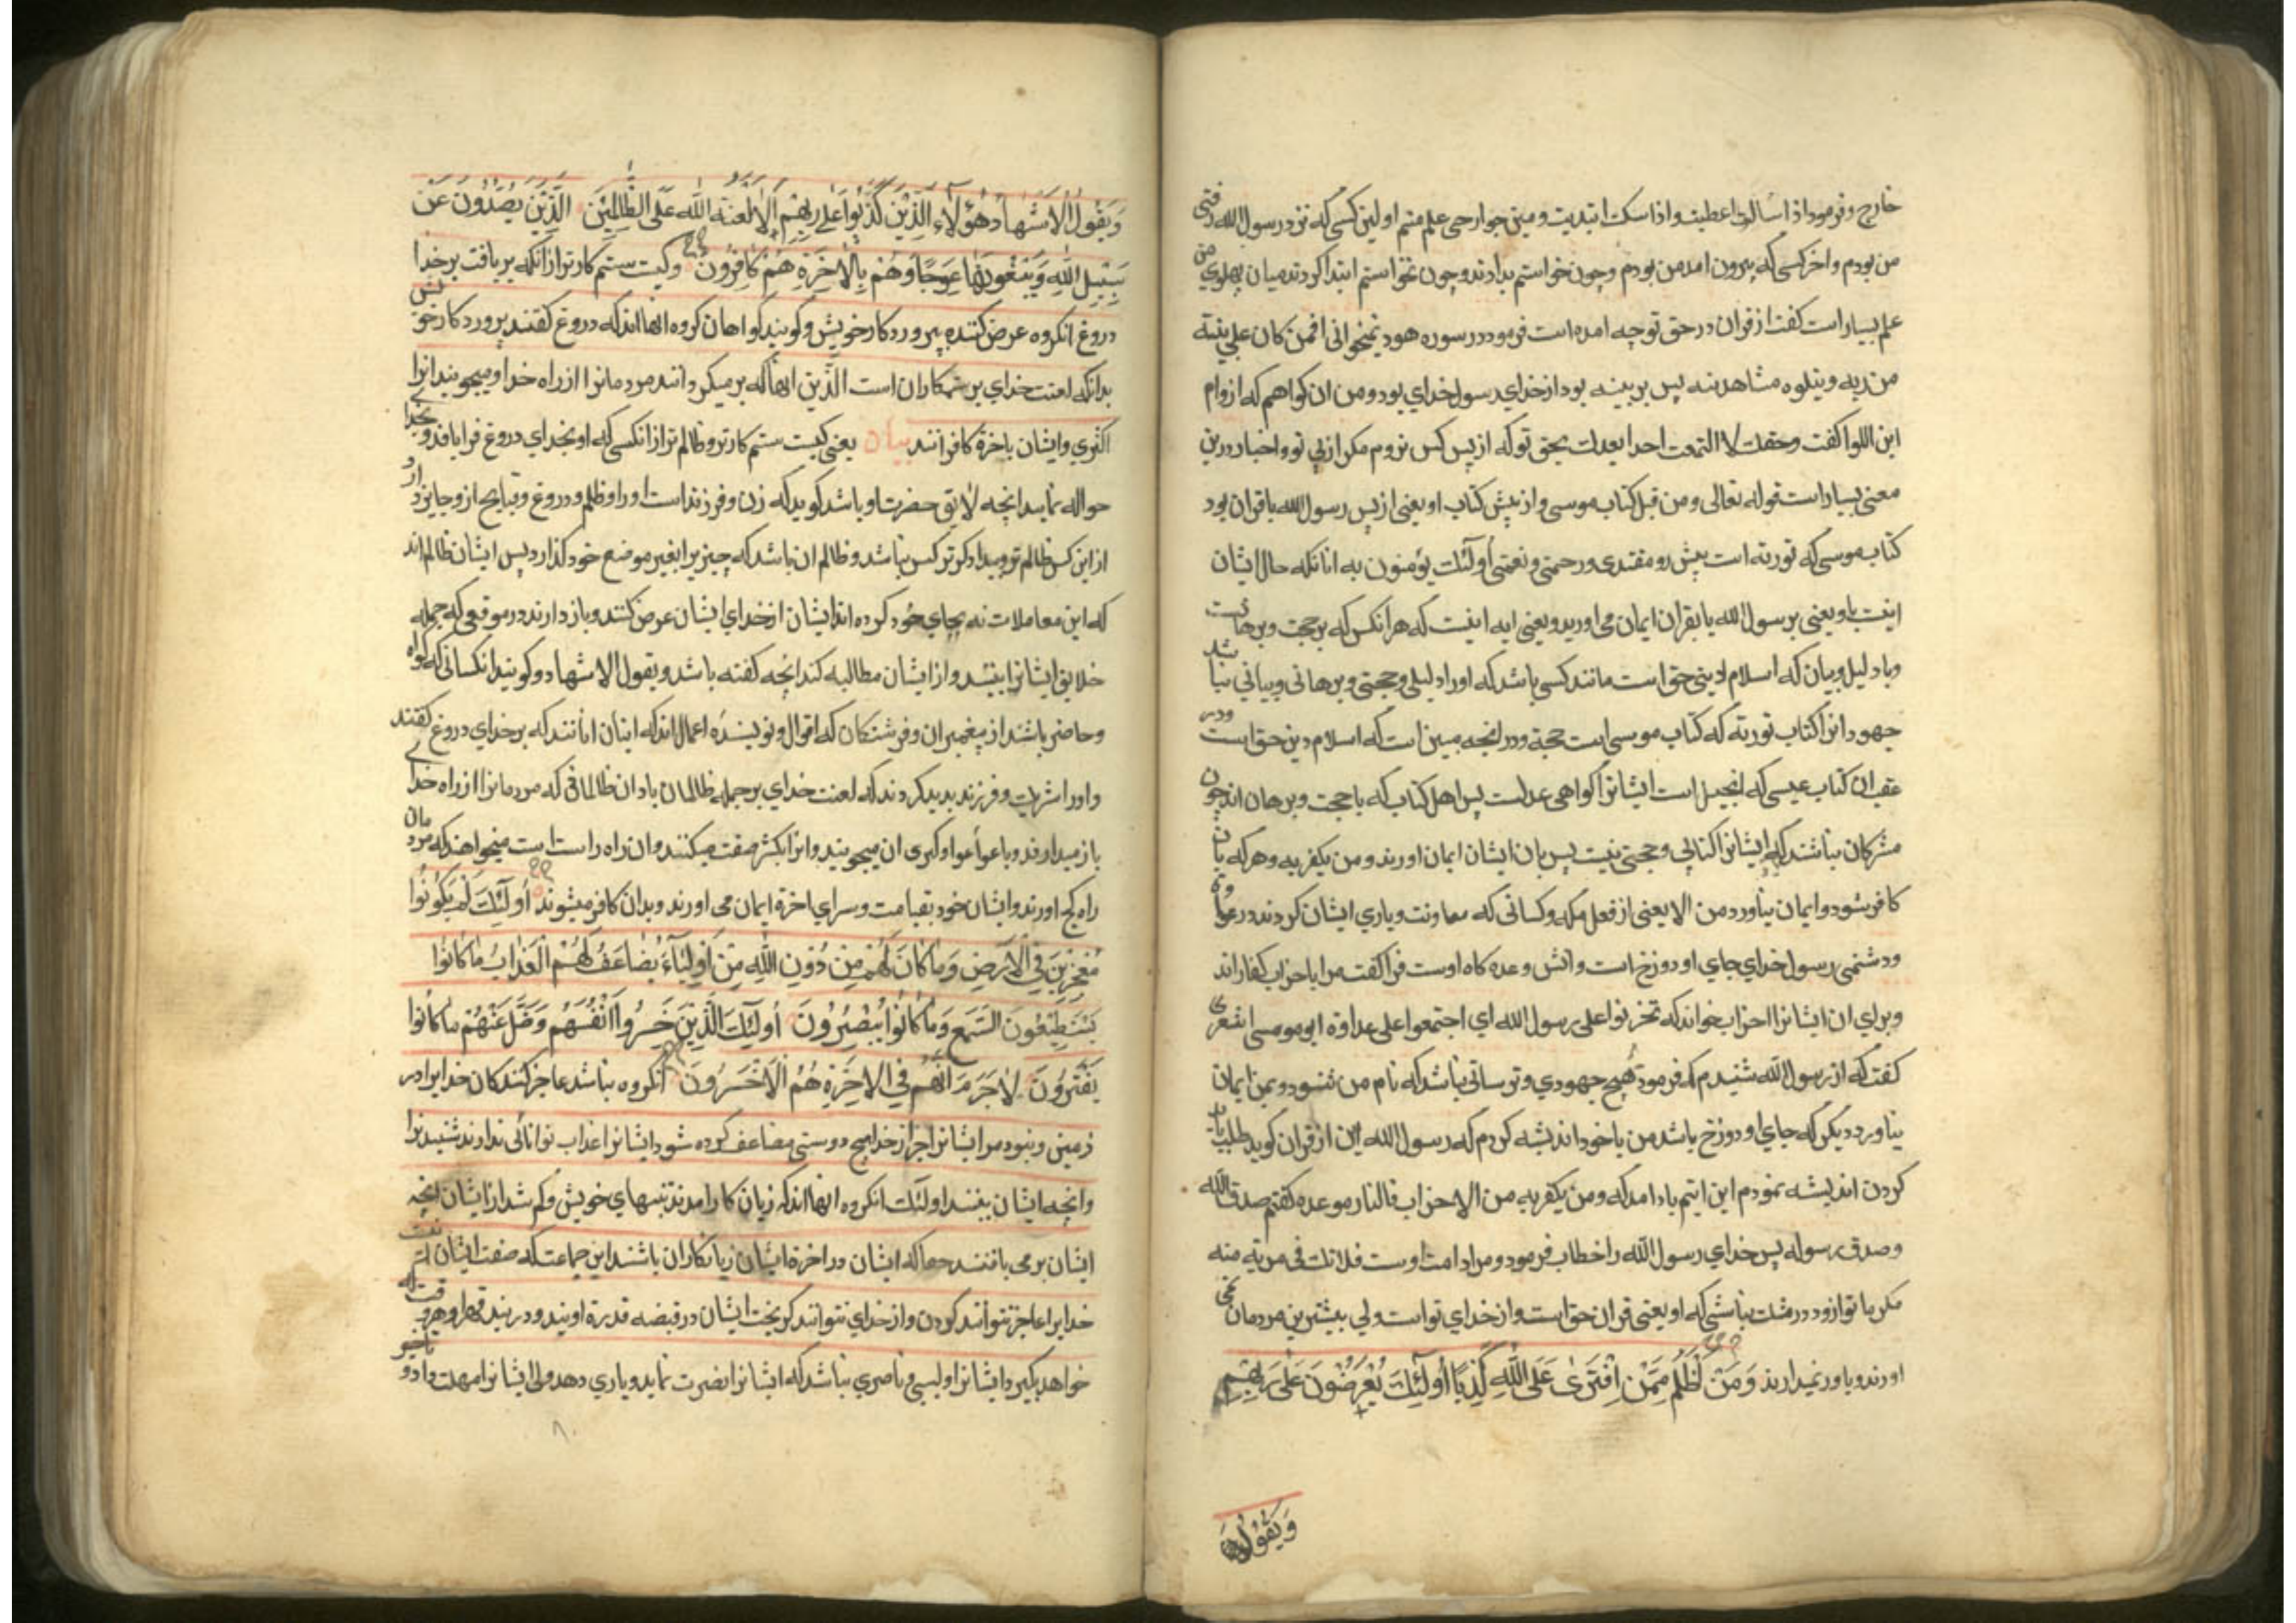 خارج و فرمود اذا سالت اعطیت و اذا سکت ابتدیت و مین جوارحی علم منم اولین کسی که نزد رسول الله رفتی
من بودم و اخر کسی که بیرون امد من بودم و چون خواستم بدادند و چون نخواستم ابتدا کردند میان پهلوی من
علم بسیار است کفت از قران در حق تو چه امده است فرمود در سوره هود نمیخوانی افمن کان علی بینة
من ربه و یتلوه شاهد منه پس بر بینه بود از خدای رسول خدای بود و من ان کواهم که ازوام
ابن اللوا کفت وحقك لا اتبعت احدا بعدك بحق تو که از پس کس نروم مکر از پی تو و اخبار درین
معنی بسیار است قوله تعالی و من قبل کتاب موسی و از پیش کتاب او یعنی از پس رسول الله یا قران بود
کتاب موسی که توریة است پیش رو مقتدی و رحمتی و نعمتی أولئك یؤمنون به انانکه حال ایشان
اینست باو یعنی بر سول الله یا بقران ایمان می اورید و یعنی ایه اینست که هر انکس که بر حجت و برهانست
و با دلیل و بیان که اسلام دینی حق است مانند کسی باشد که او را دلیلی و حجتی و برهانی و بیانی نباشد
جهودانرا کتاب توریة که کتاب موسی است حجة و در انجه مبین است که اسلام دین حق است و در
عقب ان کتاب عیسی که انجیل است ایشانرا کواهی عدلست پس اهل کتاب که با حجت و برهان اند چون
مشرکان نباشند که ایشانرا کتابی و حجتی نیست پس بان ایشان ایمان اورند و من یکفر به و هر که بان
کافر شود و ایمان نیاورد من الا یعنی از فعل مکه و کسانی که معاونت و یاری ایشان کردند در عداوة
و دشمنی رسول خدای جای او دوزخ است و اتش وعده کاه اوست فرا کفت مرا با حزاب کفاراند
و برای ان ایشانرا احزاب خواند که تحزبوا علی رسول الله ای اجتمعوا علی عداوة ابو موسی اشعری
کفت که از رسول الله شنیدم که فرمود هیچ جهودی و ترسائی نباشد که نام من شنود و بمن ایمان
نیاورد دیکن که جای او دوزخ باشد من با خود اندیشه کردم که رسول الله این از قران کوید طلب بیان
کردن اندیشه نمودم این ایتم یاد امد که و من یکفر به من الاحزاب فالنار موعده کفتم صدق الله
و صدق رسوله پس خدای رسول الله را خطاب فرمود و مراد امت اوست فلا تك فی مریة منه
مکر با تو ازو در شك نباشی که او یعنی قران حق است و از خدای تو است ولی بیشترین مردمان نمی
اورند و باور نمیدارند وَمَنْ أَظْلَمُ مِمَّنِ افْتَرَىٰ عَلَى اللَّهِ كَذِبًا أُولَٰئِكَ يُعْرَضُونَ عَلَىٰ رَبِّهِمْ
وَيَقُولُ
وَيَقُولُ الْأَشْهَادُ هَٰؤُلَاءِ الَّذِينَ كَذَبُوا عَلَىٰ رَبِّهِمْ أَلَا لَعْنَةُ اللَّهِ عَلَى الظَّالِمِينَ الَّذِينَ يَصُدُّونَ عَنْ
سَبِيلِ اللَّهِ وَيَبْغُونَهَا عِوَجًا وَهُمْ بِالْآخِرَةِ هُمْ كَافِرُونَ و کیست ستم کارتر از انکه بر بافت بر خدا
دروغ انکروه عرض کنند بپرورد کار خویش و کویند کواهان کروه انها اند که دروغ کفتند بر پرورد کار خویش
بدانکه لعنت خدای بر ستمکاران است الذین انها که بر میکردانند مردمانرا از راه خدا و میجویند انرا
اکژی و ایشان باخرة کافرانند بیان یعنی کیست ستم کارتر و ظالم تر از انکسی که او بخدای دروغ فرا بافد و بخدا
حواله نماید انچه لایق حضرت او باشد کوید که زن و فرزند است او را و ظلم و دروغ و قبایح ازو جایز دارد
از این کس ظالم تر و بیدادکرتر کس نباشد و ظالم ان باشد که چیزیرا بغیر موضع خود کذارد پس ایشان ظالم اند
که این معاملات نه بجای خود کرده اند ایشان از خدای ایشان عرض کنند و باز دارند در موقعی که جمله
خلایق ایشانرا ببیند و از ایشان مطالبه کند انچه کفته باشد و یقول الاشهاد و کویند انکسانی که کواه
و حاضر باشند از پیغمبران و فرشتکان که اقوال و نویسنده اعمال اند که اینان انانند که بر خدای دروغ کفتند
و اورا شریك و فرزند پدید کردند که لعنت خدای بر جمله ظالمان باد ان ظالمانی که مردمانرا از راه خدا
باز میدارند و باعوا عوا و کبری ان میجویند و انرا بکژ صفت میکنند و ان راه راست است میخواهند که مردمان
راه کج اورند و ایشان خود بقیامت و سرای اخرة ایمان می اورند و بدان کافر میشوند أُولَٰئِكَ لَمْ يَكُونُوا
مُعْجِزِينَ فِي الْأَرْضِ وَمَا كَانَ لَهُمْ مِنْ دُونِ اللَّهِ مِنْ أَوْلِيَاءَ يُضَاعَفُ لَهُمُ الْعَذَابُ مَا كَانُوا
يَسْتَطِيعُونَ السَّمْعَ وَمَا كَانُوا يُبْصِرُونَ أُولَٰئِكَ الَّذِينَ خَسِرُوا أَنْفُسَهُمْ وَضَلَّ عَنْهُمْ مَا كَانُوا
يَفْتَرُونَ لَا جَرَمَ أَنَّهُمْ فِي الْآخِرَةِ هُمُ الْأَخْسَرُونَ انکروه نباشد عاجز کنندکان خدایرا در
زمین و نبود مر ایشانرا جز از خدا هیچ دوستی مضاعف کرده شود ایشانرا عذاب توانائی ندارند شنیدنرا
و انچه ایشان بینند اولئك انکروه انها اند که زیان کار امدند بتنهای خویش و کم شد از ایشان انچه
ایشان بر می بافتند حقا که ایشان در اخرة ایشان زیانکاران باشند این جماعت که صفت ایشان
خدایرا عاجز نتوانند کردن و از خدای نتوانند کریخت ایشان در قبضه قدرة اویند و در بند قهر او هر وقت که
خواهد بکیرد ایشانرا و لیسی و ناصری نباشد که ایشانرا نصرت نماید و یاری دهد ولی ایشانرا مهلت داد و